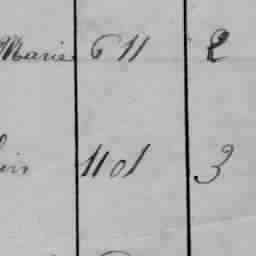 Marie 6 11 2
1101 3